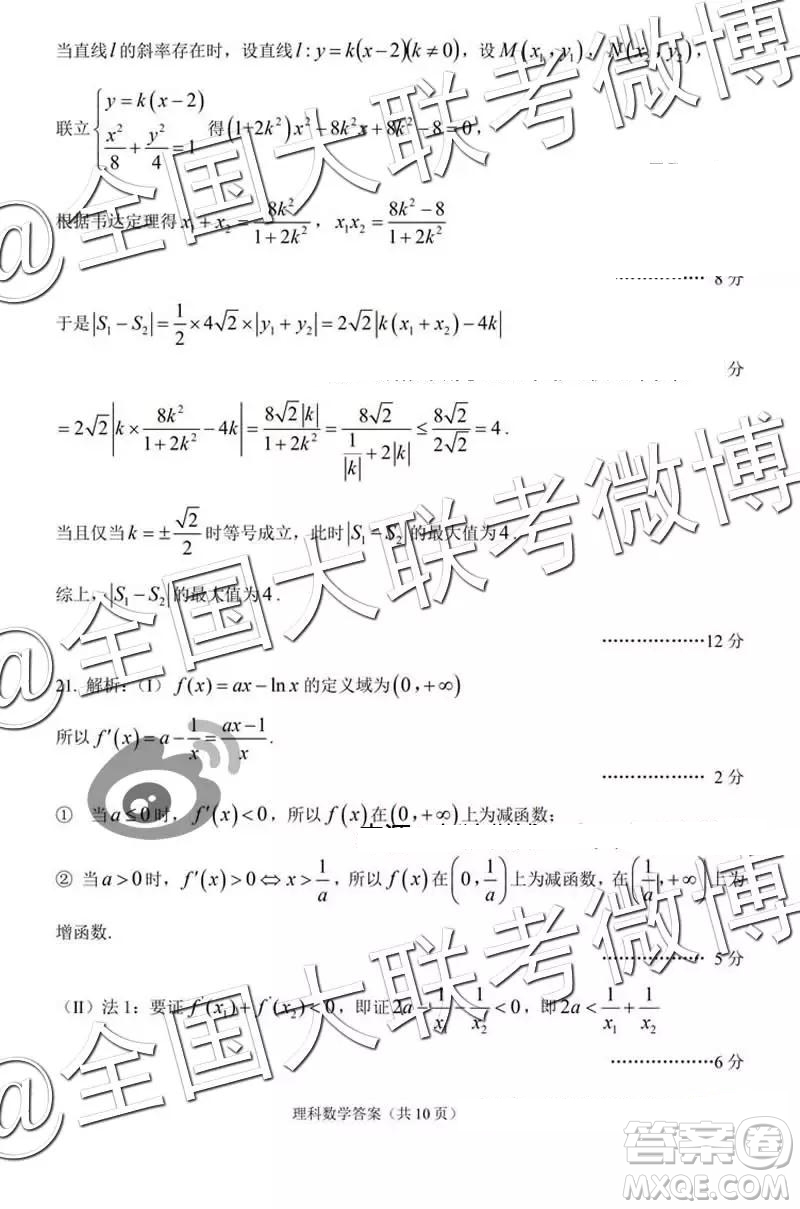 当直线l的斜率存在时，设直线l：y=k(x−2)(k≠0)，设M(x₁，y₁)，N(x₂，y₂)，
联立{y=k(x−2)，x²/8+y²/4=1 得(1+2k²)x²−8k²x+8k²−8=0，
根据韦达定理得x₁+x₂=8k²/(1+2k²)，x₁x₂=(8k²−8)/(1+2k²)
8分
于是|S₁−S₂|=1/2×4√2×|y₁+y₂|=2√2|k(x₁+x₂)−4k|
分
=2√2|k×8k²/(1+2k²)−4k|=8√2|k|/(1+2k²)=8√2/(1/|k|+2|k|)≤8√2/2√2=4.
当且仅当k=±√2/2时等号成立，此时|S₁−S₂|的最大值为4.
综上，|S₁−S₂|的最大值为4.
··················12分
21. 解析：（I）f(x)=ax−lnx的定义域为(0，+∞)
所以f′(x)=a−1/x=(ax−1)/x.
··················2分
① 当a≤0时，f′(x)<0，所以f(x)在(0，+∞)上为减函数；
② 当a>0时，f′(x)>0⇔x>1/a，所以f(x)在(0，1/a)上为减函数，在(1/a，+∞)上为
增函数.
··················5分
（II）法1：要证f′(x₁)+f′(x₂)<0，即证2a−1/x₁−1/x₂<0，即2a<1/x₁+1/x₂
··················6分
理科数学答案（共10页）
@全国大联考微博
@全国大联考微博
答案圈
MXQE.COM